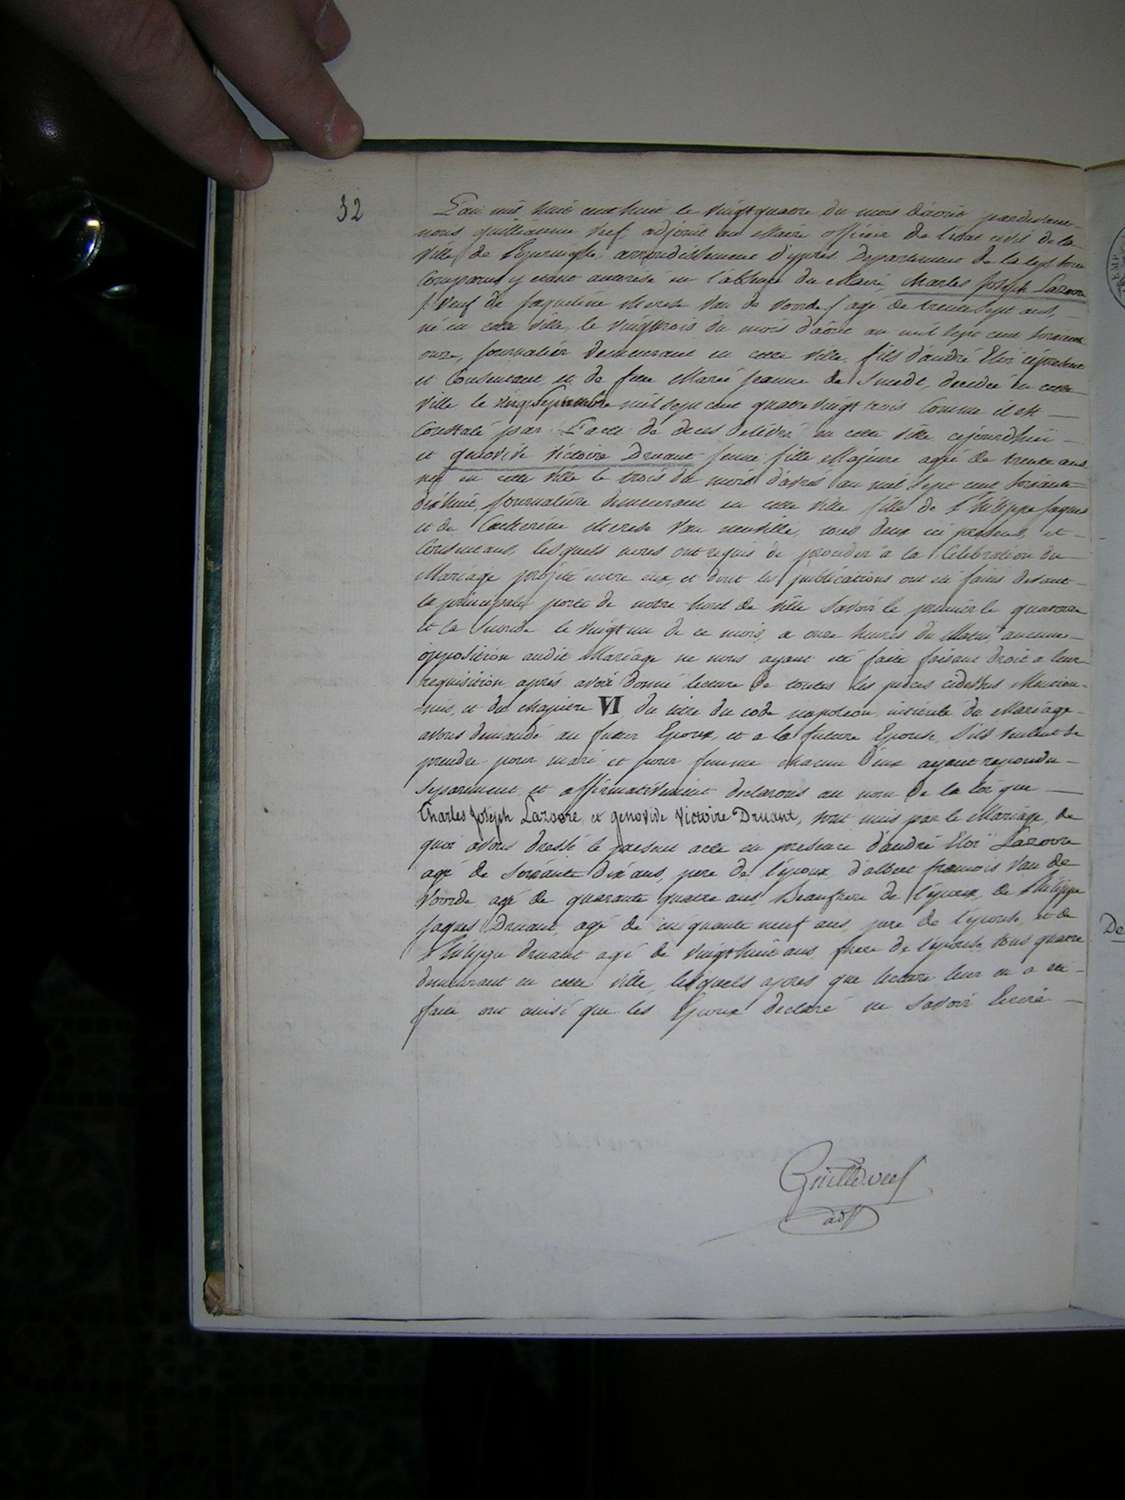 32
L'an mil huit cent huit le vingt quatre du mois d'avril pardevant
nous guilliaume Vref adjoint au Maire officier de l'état civil de la
ville de Poperinghe, arrondissement d'ypres Departement de la Lys
Comparus y étant autorisé en l'absence du Maire, Charles Joseph Lazoore
veuf de Jaqueline therese Van de Voorde / agé de trente sept ans,
né en cette ville, le vingt trois du mois d'août an mil sept cent soixante
onze, journalier demeurant en cette ville, fils d'andré Eloi ci présent
et Consentant, et de feue Marie Jeanne de Smedt, decedée en cette
ville le vingt Septembre mil sept cent quatre vingt trois Comme il est
Constaté par l'acte de deces delivré en cette ville cejourdhui
et genovive Victoire Druant jeune fille Majeure agée de trente ans
née en cette ville le trois du mois d'avril an mil sept cent soixante
dix huit, journalière demeurant en cette ville fille de Philippe Jaques
et de Catherine therese Van neuville, tous deux ici présens, et
Consentans, lesquels nous ont requis de proceder à la Célébration du
Mariage projeté entre eux, et dont les publications ont été faites devant
la principale porte de notre hotel de ville Savoir le premier le quatorze
et la Seconde le vingt un de ce mois, a onze heures du Matin, aucune
opposition audit Mariage ne nous ayant été faite faisant droit a leur
requisition après avoir donné lecture de toutes les pièces cidessus Mention-
nées, et du chapitre VI du titre du code napoleon, intitulé du Mariage
avons demandé au futur Epoux, et a la future Epouse, s'ils veulent se
prendre pour mari et pour femme chacun d'eux ayant repondu
séparement et affirmativement declarons au nom de la loi que
Charles Joseph Lazoore, et genovive Victoire Druant, sont unis par le Mariage, de
quoi avons dressé le présent acte en presence d'andré Eloi Lazoore
agé de soixante dix ans, pere de l'époux, d'albert francois Van de
Voorde agé de quarante quatre ans, Beaufrere de l'époux, de Philippe
Jaques Druant, agé de cinquante neuf ans, pere de l'épouse, et de
Philippe druant agé de vingt huit ans, frere de l'épouse, tous quatre
demeurant en cette ville, lesquels apres que lecture leur en a été
faite, ont ainsi que les Epoux declaré ne savoir Ecrire
adjt
De